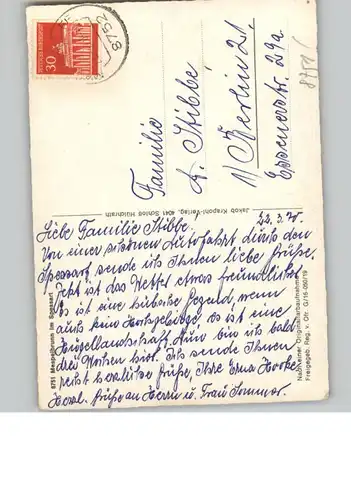 30
8752
8751
Familie
A. Stibbe
1/ Berlin 21
Essenerstr. 29a
Jakob Krapohl-Verlag, 4041 Schloß Hülchrath
22.3.70.
Liebe Familie Stibbe.
Von einer schönen Autofahrt durch den
Spessart sende ich Ihnen liebe Grüße.
Jetzt ist das Wetter etwas freundlicher
Es ist eine hübsche Gegend, wenn
auch kein Hochgebirge, es ist eine
Hügellandschaft. Nun bin ich bald
drei Wochen hier. Ich sende Ihnen
recht herzliche Grüße, Ihre Erna
Herzl. Grüße an Herrn u. Frau Sommer.
8751 Mespelbrunn im Spessart
Nach einer Originalfarbaufnahme
Freigegeb. Reg. v. Ofr.